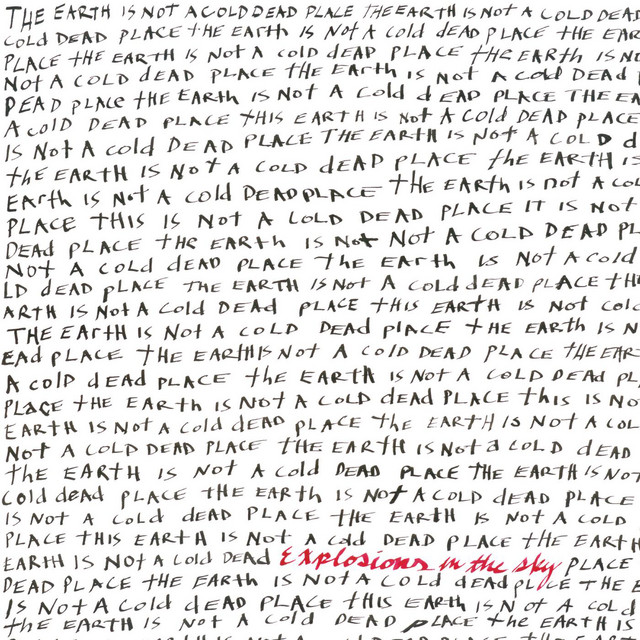 THE EARTH IS NOT A COLD DEAD PLACE THE EARTH IS NOT A COLD DEAD
COLD DEAD PLACE tHE EARtH IS NOt A cold dEAD PLACE THE EAR
PLACE tHE EARTH IS Not A cold dEAD PLACE tHE EARTH IS NO
Not A COLD dEAD PLACE tHE EARth is Not A cold DEAD
DEAD place tHE EARth IS NOT A Cold d EAD PLACE THE EA
A cold DEAD PLACE tHIS EARTH IS Not A Cold DEAD PLACE
IS Not A cold DEAD PLACE THE EARTH IS NOT A COLD d
tHE EARTH IS NOT A COLD dEAD PLACE tHE EARTH IS
EARth IS Not A cold DEAD PLACE tHE EARTH is not A co
PLACE THIS IS NOT A COLD DEAD PLACE IT IS NOT
DEAd PLACE tHE EARtH IS Not Not A COLD DEAD PL
NOT A cold dEAD PLACE the EARth is Not A cold
LD dEAD pLACE THE EARTH IS Not A cold dEAD PLACE tH
ARTH IS Not A Cold DEAD PLACE tHIS EARTH IS Not col
THE EARtH IS Not A COLD DEAd plACE tHE EARth IS N
EAd PLACE tHE EARtH IS Not A Cold DEAD PLACE tHE EAR
A cold dEAD PLACE the EARth IS NOT A COLD DEAd PL
PLAcE tHE EARth IS Not A Cold dEAD PLACE this IS No
EARTH IS NOT A cold dEAD PLACE the EARTH IS Not A COL
Not A COLD DEAD PLACE tHE EARTH IS Not a COLD dEAD
the EARTH IS NOT A cold DEAD PLACE tHE EARTH IS NOT
Cold dEAd PLACE tHE EARtH IS NOt A COLD dEAD PLACE
IS NOT A cold dEAD PLACE tHE EARTH IS Not A COLD
PLACE THIS EARTH IS Not A cold DEAD PLACE tHE EARtH
EARTH IS NOt A cold DEAD Explosions in the sky PLACE
DEAD PLACE tHE EARtH IS NOt A COLD dEAd plACE tHE E
IS NOt A Cold dEAD PLACE tHIS EARth IS N ot A cold
tHE EARTH IS NOT A cold DEAD PLACE tHE EARTH IS